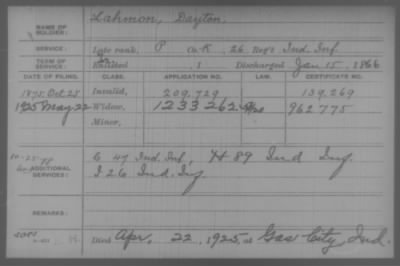 NAME OF SOLDIER: Lahmon, Dayton.
SERVICE: Late rank, P Co. K, 26 Reg't Ind. Inf.
TERM OF SERVICE: Enlisted , 1 Discharged Jan 15, 1866
DATE OF FILING. CLASS. APPLICATION NO. LAW. CERTIFICATE NO.
1875 Oct 25 Invalid, 209.729 139,269
1925 May 22 Widow, 1233262 962775
Minor,
ADDITIONAL SERVICES: C 47 Ind. Inf, H 89 Ind Inf
I 26 Ind. Inf
REMARKS:
Died Apr. 22, 1925, at Gas City, Ind.